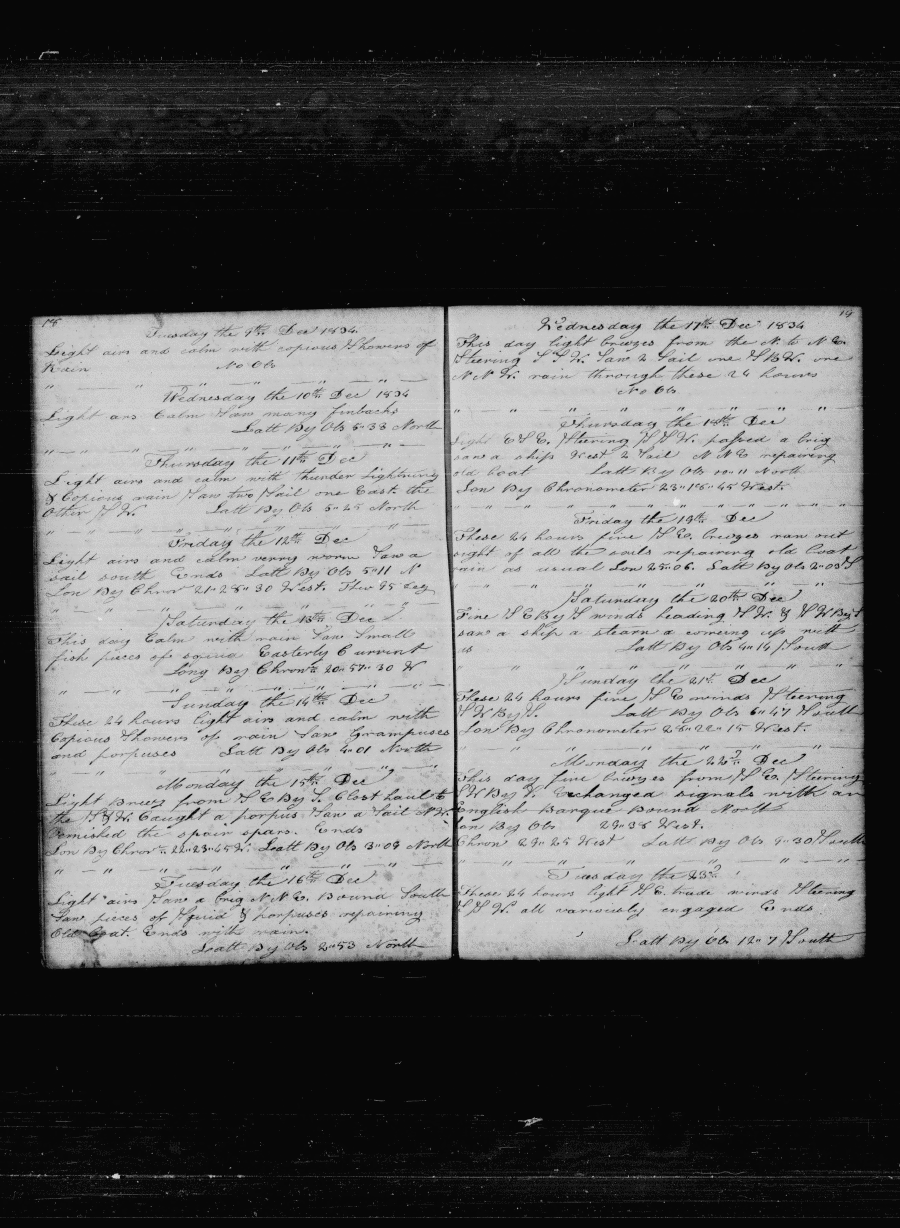 18
Tuesday the 9th Dec 1834
Light airs and calm with copious Showers of
Rain No Obs
Wednesday the 10th Dec 1834
Light airs Calm Saw many finbacks
Latt By Obs 5"33 North
Thursday the 11th Dec
Light airs and calm with thunder Lightning
& Copious rain Saw two Sail one East the
Other S W. Latt By Obs 5"25 North
Friday the 12th Dec
Light airs and calm verry worm Saw a
sail south Ends Latt By Obs 5"11 N
Lon By Chror 21"28"30 West. Ther 95 deg
Saturday the 13th Dec
This day Calm with rain Saw Small
fish pieces of squid Easterly Current
Long By Chronr 20"57"30 W
Sunday the 14th Dec
These 24 hours light airs and calm with
Copious Showers of rain Saw Grampuses
and porpuses Latt By Obs 4"01 North
Monday the 15th Dec
Light Breez from S E By S. Clost haul to
the S & W Caught a porpus Saw a Sail N W.
Ends
Lon By Chror 22"23"45 W. Latt By Obs 3"09 North
Tuesday the 16th Dec
Light airs Saw a brig N N E. Bound South
Saw pieces of Squid & porpuses repairing
Old Boat. Ends with rain.
Latt By Obs 2"53 North
19
Wednesday the 17th Dec 1834
This day light breezes from the N. to N E.
Steering S S W. Saw 2 Sail one S B W. one
N N W. rain through these 24 hours
No Obs
Thursday the 18th Dec
Light E S E. Steering S S W. passed a brig
saw a ship West 2 Sail N N E repairing
old boat Latt By Obs 00"11 North
Lon By Chronometer 23"18"45 West.
Friday the 19th Dec
These 24 hours fine S E. breezes ran out
sight of all the sails repairing old boat
rain as usual Lon 25"06. Latt By Obs 2"03 S
Saturday the 20th Dec
Fine S E By S winds heading S W. & S W By S
saw a ship a stearn a comeing up with
us Latt By Obs 4"14 South
Sunday the 21st Dec
These 24 hours fine S E winds Steering
S W By S. Latt By Obs 6"47 South
Lon By Chronometer 28"22"15 West.
Monday the 22d Dec
This day fine breezes from S E. Steering
S W By S. Exchanged signals with an
English Barque Bound North
Lon By Obs 29"38 West.
Chron 29"25 West Latt By Obs 9"30 South
Tuesday the 23d
These 24 hours light S E trade winds Steering
S S W. all variously engaged Ends
Latt By Obs 12"7 South